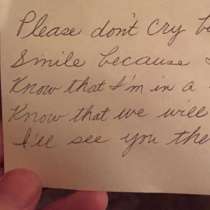 Please don't cry
Smile because
Know that I'm in a
Know that we will
I'll see you